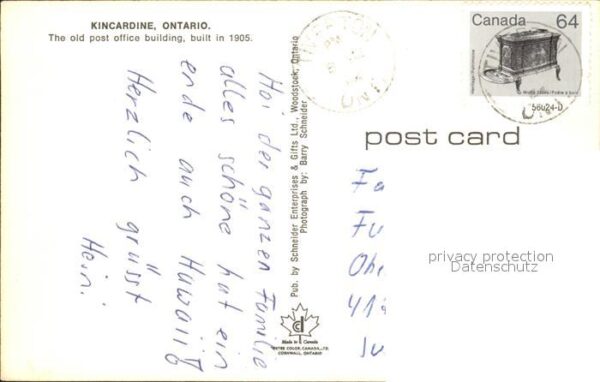 KINCARDINE, ONTARIO.
The old post office building, built in 1905.
Hoi der ganzen Familie
alles schöne hat ein
ende auch Hawaii!
Herzlich grüsst
Hein.
Pub. by Schneider Enterprises & Gifts Ltd., Woodstock, Ontario
Photograph by: Barry Schneider
Made in Canada
CORNWALL, ONTARIO
TIVERTON
PM
ONT
Canada 64
56024-D
ONT
post card
Fa
Fu
Obe
41
privacy protection
Datenschutz